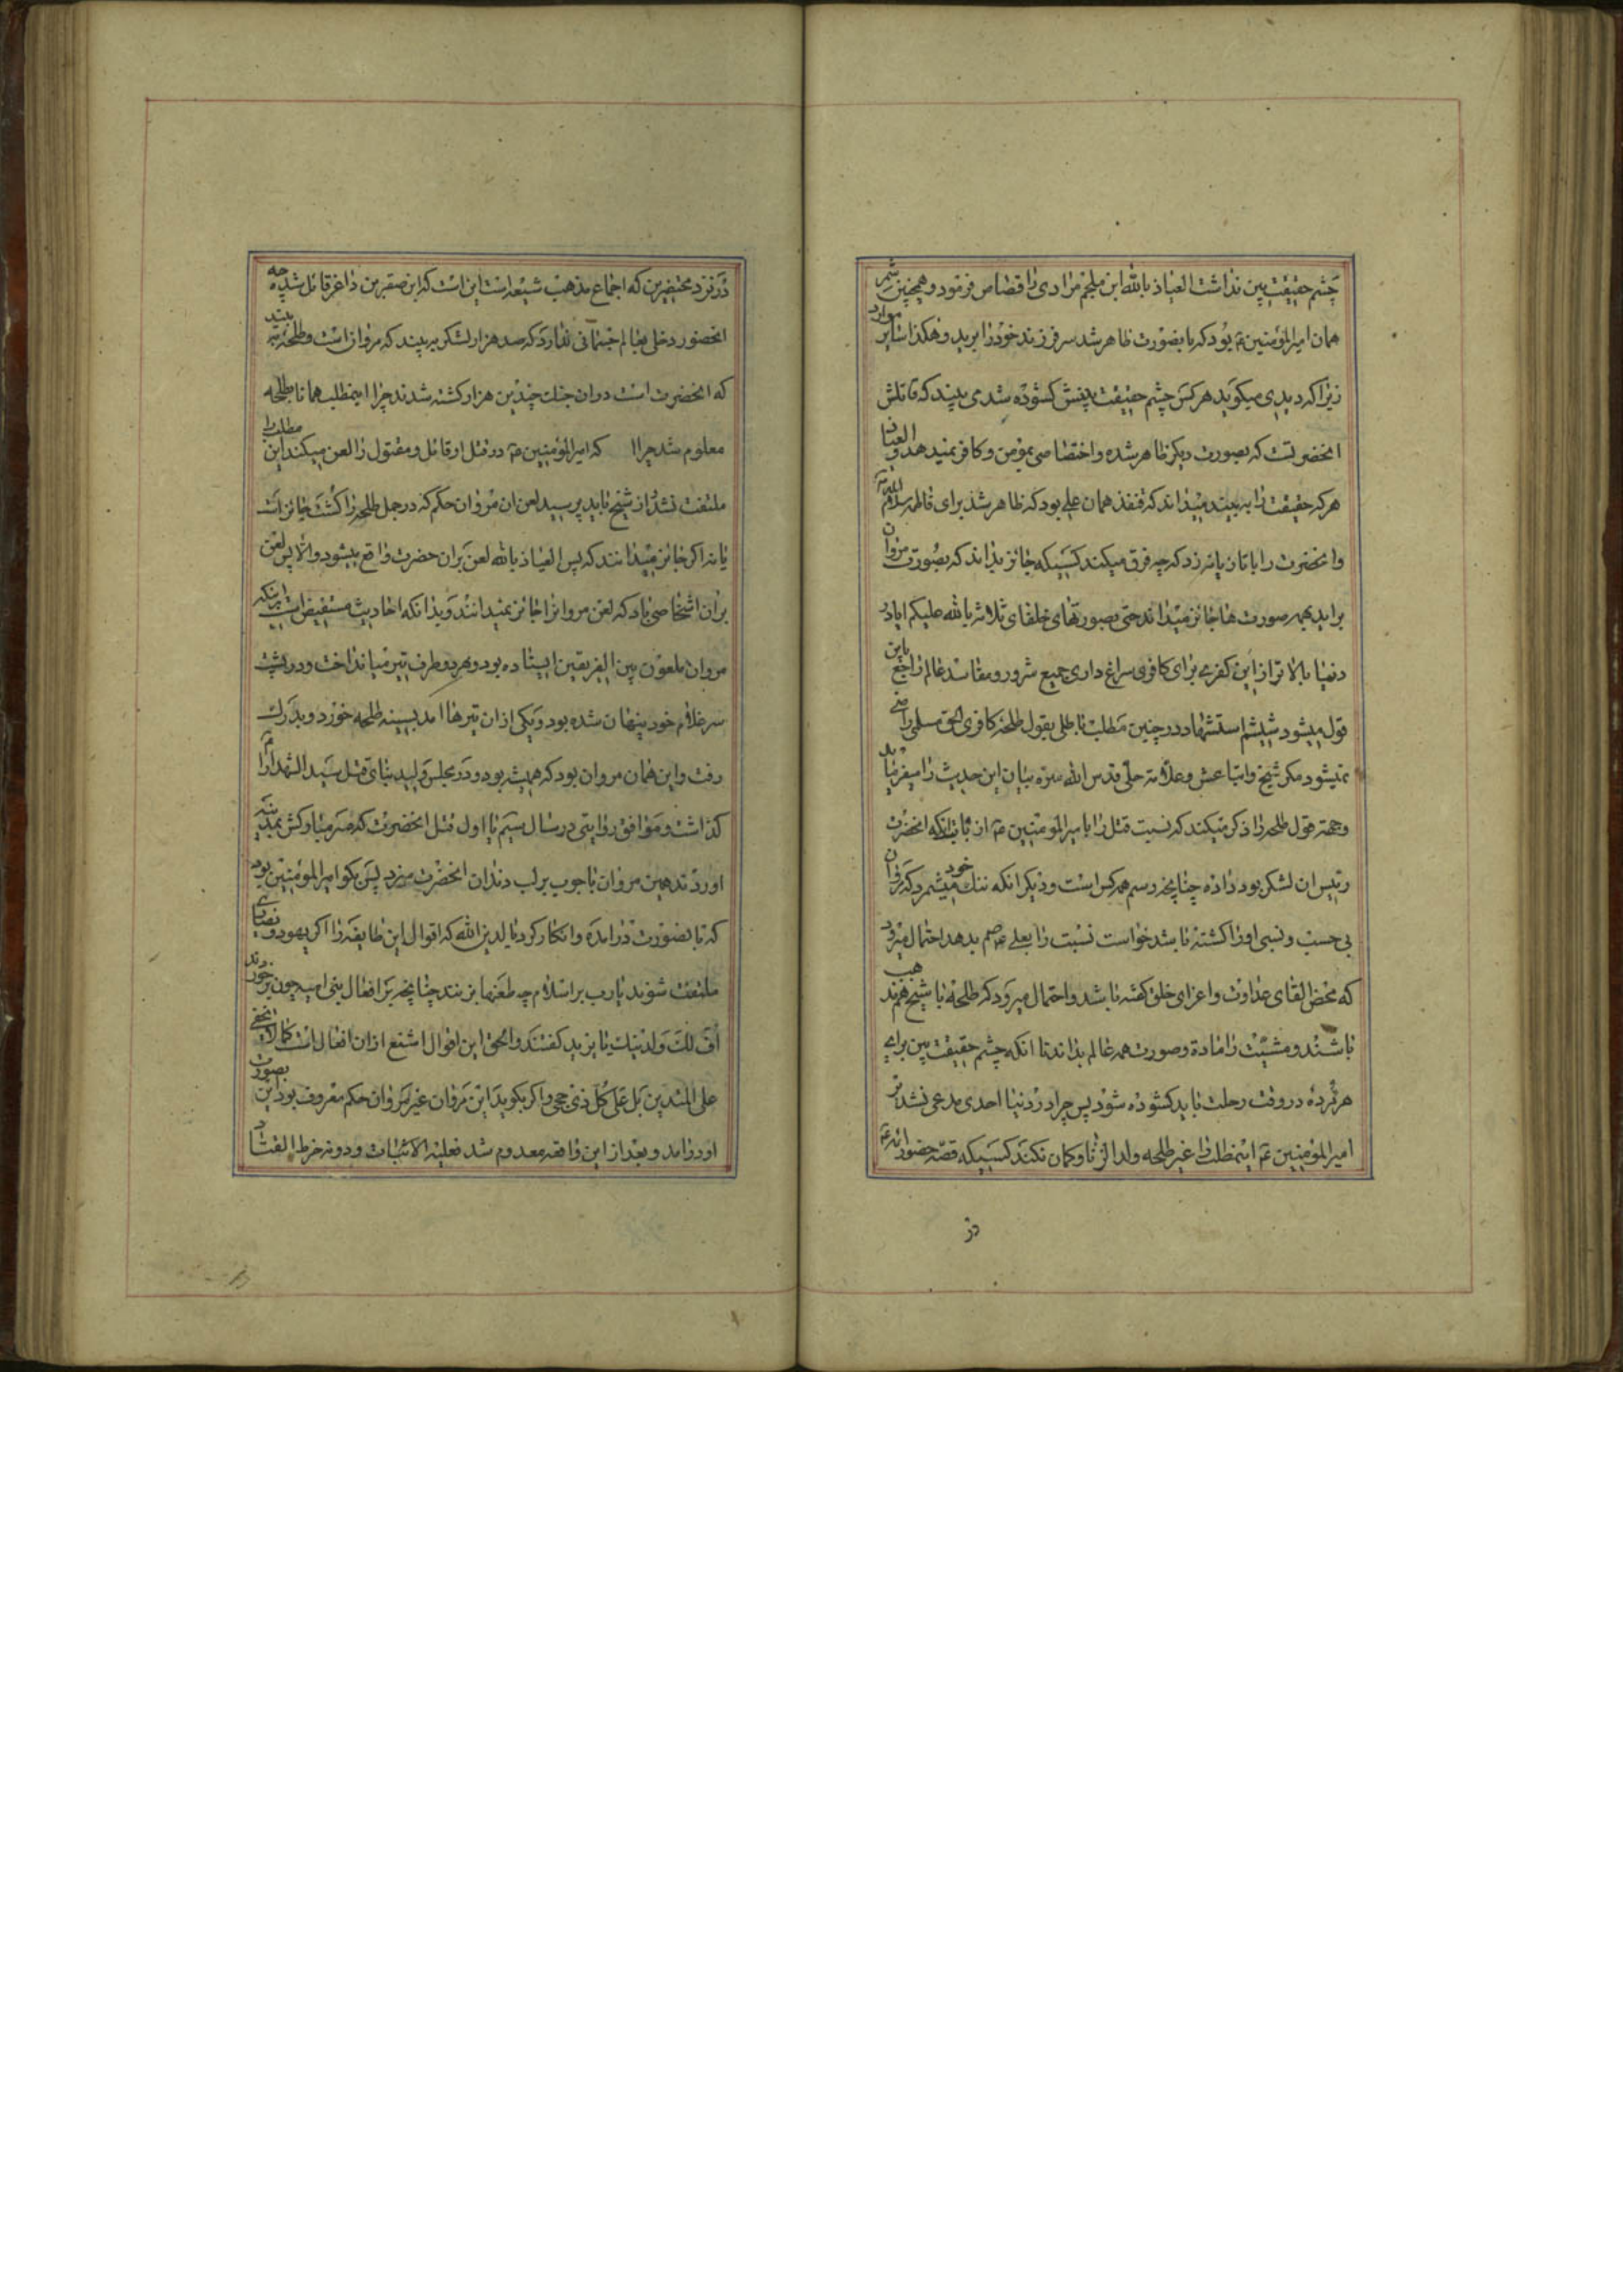 چشم حقیقت بین نداشت العیاذ بالله ابن ملجم مرادی را قصاص فرمود و همچنین شمر
همان امیرالمؤمنین ع بود که بابصورت ظاهر شد سر فرزند خود را برید و هکذا سایر موارد
زیرا که دیدی میکوید هر کس چشم حقیقت بینش کشوده شد می بیند که قاتلش
انحضرتست که بصورت دیکر ظاهر شده و اختصاصی بمؤمن و کافر نمیدهد و العیاذ
هر که حقیقت را به بیند میداند که قنفذ همان علی بود که ظاهر شد برای فاطمه سلام الله
وانحضرت را باتازیانه زد که چه فرق میکند کسیکه جائز بداند که بصورت مروان
براید بهمه صورت ها جائز میداند حتی بصورتهای خلفای ثلاثه بالله علیکم ایا در
دنیا بالاتر از این کفری برای کافری سراغ داری جمیع شرور و مفاسد عالم راجع باین
قول میشود شیشم استشهاد در چنین مطلب باطلی بقول طلحه کافری الحق مسلمی راضی
نمیشود مکر شیخ و اتباعش و علامه حلی قدس الله سره بیان این حدیث را میفرماید
وجهة قول طلحه را ذکر میکند که نسبت قتل را بامیرالمؤمنین ع از بابت انکه انحضرت
رئیس ان لشکر بود داده چنانچه رسم همه کس است و دیکر انکه ننک خود میشمرد که مروان
بی حسب و نسبی او را کشته باشد خواست نسبت را بعلی ع هم بدهد احتمال میرود
که محض القای عداوت و اعزای خلق کفته باشد و احتمال میرود که طلحه با شیخ هم مذهب
باشند و مشیت را ماده و صورت همه عالم بداند تا انکه چشم حقیقت بین برای
هر مرده در وقت رحلت باید کشوده شود پس چرا در دنیا احدی مدعی نشد بر
امیرالمؤمنین ع اینمطلب را غیر طلحه ولد الزنا و کمان نکند کسیکه قصه حضور ائمه ع
در
در نزد محتضرین که اجماع مذهب شیعه است این است که این صقر من داغر قائل شده چه
انحضور دخلی بعالم جسمانی ندارد که صد هزار لشکر به بیند که مروان است و طلحه به بیند
که انحضرت است در ان جنک چندین هزار کشته شدند چرا اینمطلب همانا بطلحه
معلوم شد چرا که امیرالمؤمنین ع در قتل او قاتل و مقتول را لعن میکند این مطلب را
ملتفت نشد از شیخ باید پرسید لعن ان مروان حکم که در جمل طلحه را کشت جائز است
یا نه اکر جائز میدانند که پس العیاذ بالله لعن بران حضرت واقع میشود والا پس لعن
بران اشخاصی باد که لعن مروانرا جائز نمیدانند و بدانکه احادیث مستفیض است اینکه
مروان ملعون بین الفریقین ایستاده بود و بهر دو طرف تیر میانداخت و در پشت
سر غلام خود پنهان شده بود و یکی از ان تیرها امد بسینه طلحه خورد و بدرک
رفت و این همان مروان بود که همیشه بود و در مجلس ولید بنای قتل سید الشهدا را
کذاشت و موافق روایتی در سال سیم یا اول قتل انحضرت که سر مبارکش بمدینه
اوردند همین مروان با چوب بر لب دندان انحضرت میزد پس بکو امیرالمؤمنین بود
که بانصورت درامده و انکار کرد یا لدین الله که اقوال این طایفه را اکر یهود و نصاری
ملتفت شوند یارب براسلام چه طعنها بزنند چنانچه بر افعال بنی امیه چون برخوردند
اف لک و لدینک یا یزید کفتند و الحق این اقوال اشنع از ان افعال است کما لا یخفی
علی المتدین بل علی کل ذی حجی و اکر بکوید این مروان غیر مروان حکم معروف بود این بصورت
او درامد و بعد از این واقعه معدوم شد فعلیه الاثبات و دونه خرط القتاد